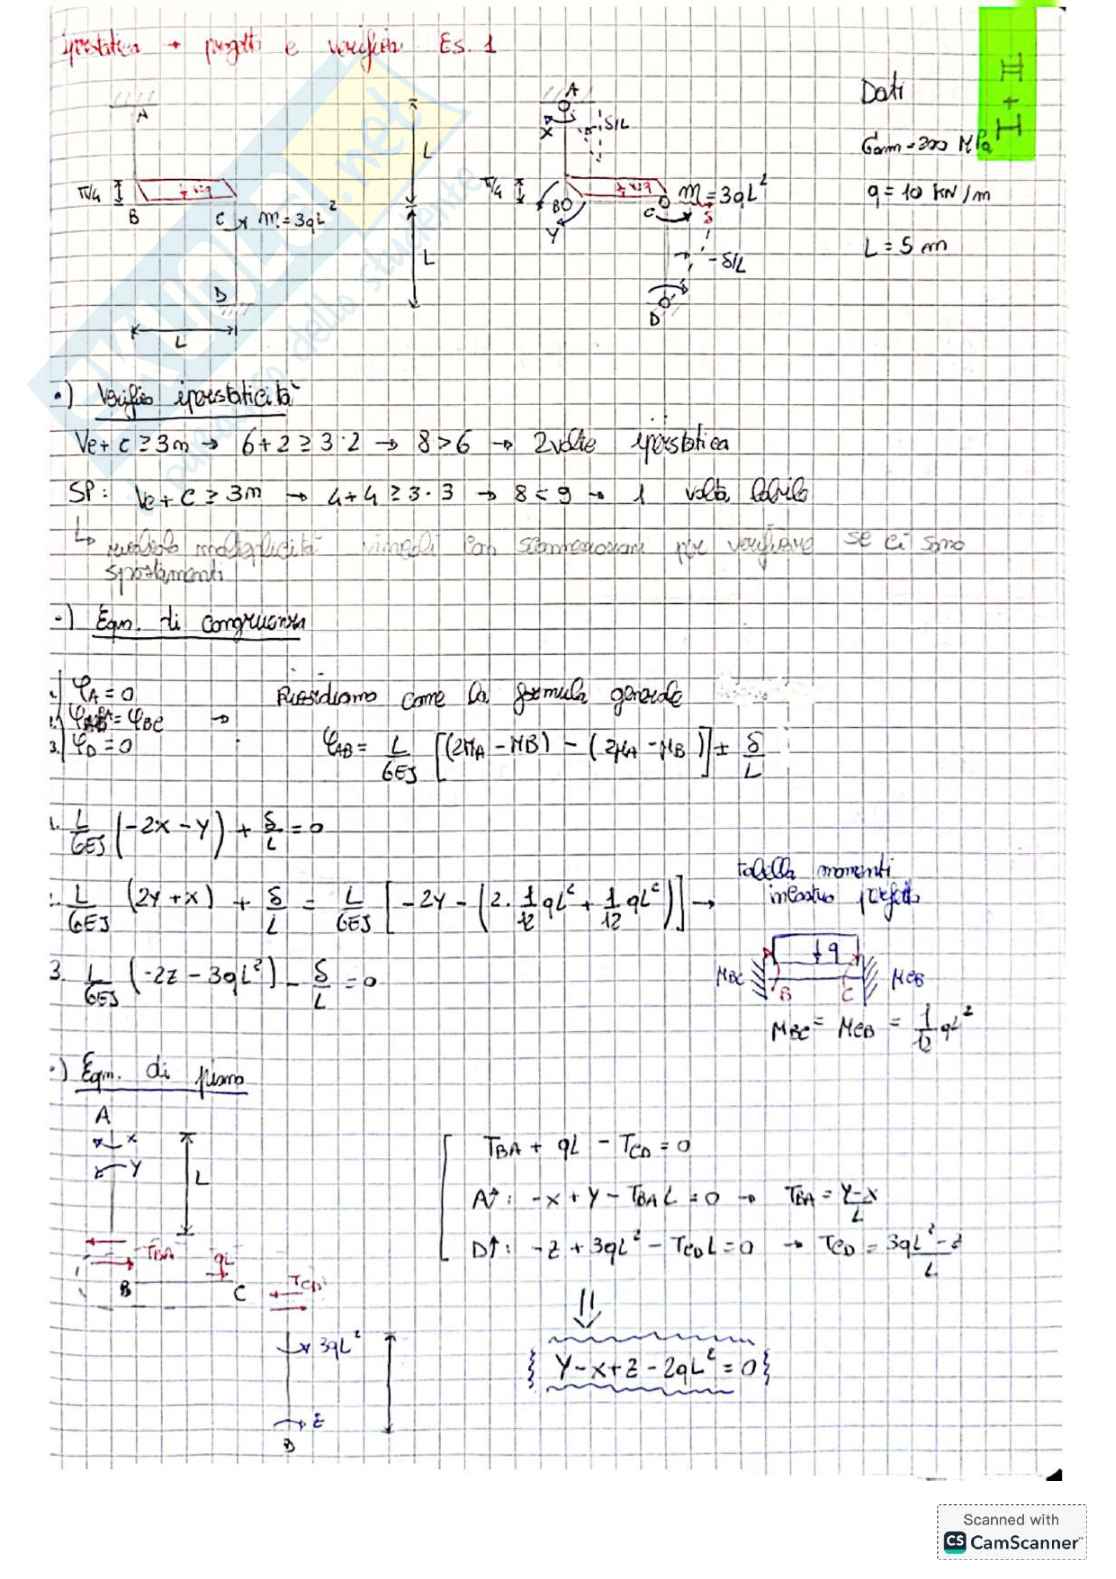 iperstatica + progetto e verifica Es. 1
II + I
Dati
σamm = 200 MPa
q = 10 KN/m
L = 5 m
A
B
C
m = 3qL²
π/4
L
L
D
L
A
X
δ/L
π/4
B
Y
C
m = 3qL²
δ
-δ/L
D
•) Verifica iperstaticità
Ve + c ≥ 3m → 6+2 ≥ 3·2 → 8 > 6 → 2 volte iperstatica
SP: Ve + c ≥ 3m → 4+4 ≥ 3·3 → 8 < 9 → 1 volta labile
↳ molteplicità vincoli con sconnessioni per verificare se ci sono
spostamenti
-) Eqn. di congruenza
1. φA = 0
2. = φBC →
3. φD = 0
Ricordiamo come la formula generale
φAB = L/6EJ [(2MA - MB) - (2μA - μB)] ± δ/L
1. L/6EJ (-2X - Y) + δ/L = 0
2. L/6EJ (2Y + X) + δ/L = L/6EJ [-2Y - (2·1/12 qL² + 1/12 qL²)] →
tabella momenti
incastro perfetto
3. L/6EJ (-2Z - 3qL²) - δ/L = 0
q
MBC
B
C
MCB
MBC = MCB = 1/12 qL²
•) Eqn. di piano
A
X
Y
L
TBA
qL
B
C
TCD
3qL²
Z
D
TBA + qL - TCD = 0
A: -X + Y - TBA L = 0 → TBA = Y-X/L
D: -Z + 3qL² - TCD L = 0 → TCD = 3qL² - Z/L
⇓
Y - X + Z - 2qL² = 0
Scanned with
CS CamScanner